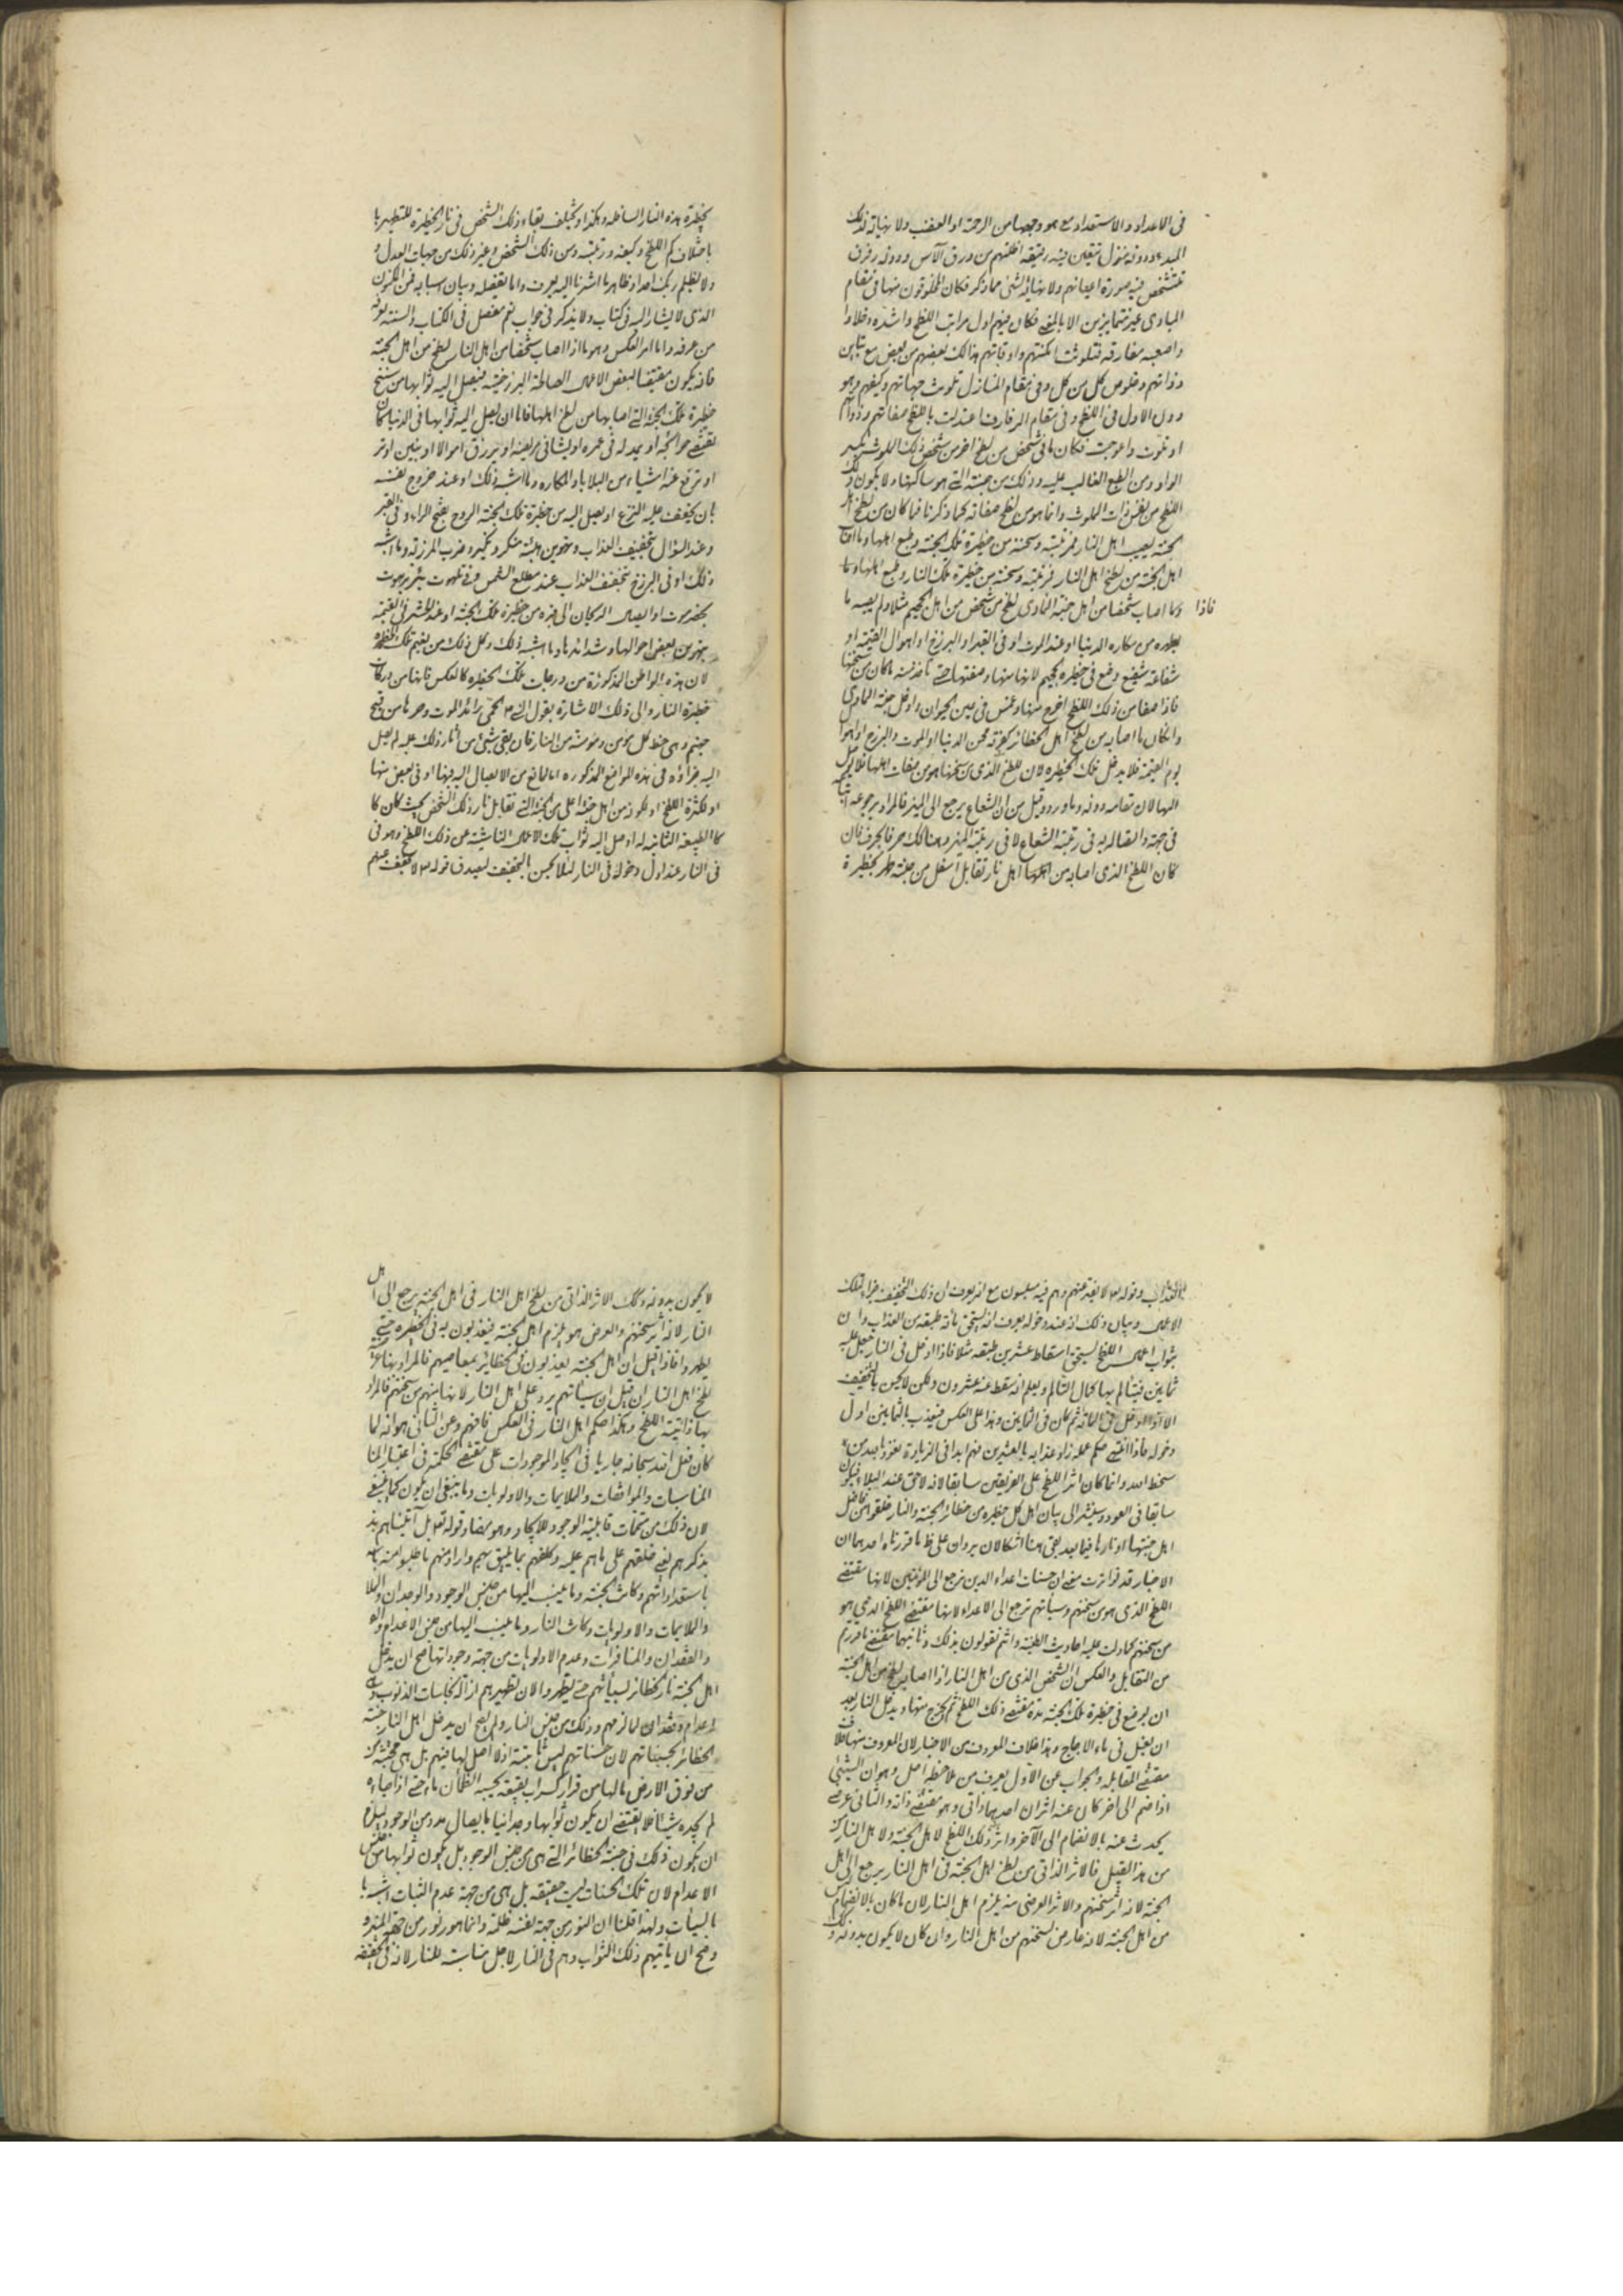 في الاعداد والاستعداد مع هو وجهها من الرحمة او الغضب ولا نهاية لذلك
المبدء ودونه منزل تتعين فيه رقيقه اظلتهم من ورق الآس ودونه رفرف
تتشخص فيه صورة اعيانهم ولا نهاية لشئ مما ذكر فكان المخلوقون منها في مقام
المبادى غير متمايزين الا بالمعنى فكان فيهم اول مراتب اللطخ واشده دخلا وا
واصعبه مفارقه فتلوثت امكنتهم واوقاتهم هنالك بعضهم من بعض مع تباين
ذواتهم وخلوص كل من كل وفى مقام المنازل تلوث جهاتهم وكيفهم وهو
دون الاول فى اللطخ وفى مقام الرفارف اعتدلت باللطخ صفاتهم وذواتهم
او تلوث واعوجت فكان ما في شخص من لطخ اخر من شخص ذلك اللوث بكسر
الواو ومن الطبع الغالب عليه وذلك من جنته التى هو ساكنها ولا يكون ذلك
اللطخ من نفس ذات الملوث وانما هو من لطخ صفاته كما ذكرنا فما كان من لطخ اهل
الجنة يصيب اهل النار فمن رتبته وسنخه من حظيرة تلك الجنة وطبع اهلها وما اصاب
اهل الجنة من لطخ اهل النار فمن رتبته وسنخه من حظيرة تلك النار وطبع اهلها وما
فاذا
وكما اصاب شخصا من اهل جنة المأوى لطخ من شخص من اهل الجحيم مثلا ولم يصبه ما
يطهره من مكاره الدنيا او عند الموت او فى القبر او البرزخ او اهوال القيمة او
شفاعة شفيع وضع فى حظيرة الجحيم لانها منها ومقتضاها حتى تاخذ منه ما كان من سنخها
فاذا صفا من ذلك اللطخ اخرج منها وغمس فى عين الحيوان وادخل جنة المأوى
وان كان ما اصابه من لطخ اهل الحظائر كفرته محن الدنيا او الموت والبرزخ او اهوال
يوم القيمة فلا يدخل تلك الحظيره لان لطخ الذى من سنخها هو من صفات اهلها فلا يصل
اليها لان تمامه دونه وما ورد وقيل من ان الشعاع يرجع الى المنير فالمراد برجوعه انتهائه
فى جهته واتصاله به فى رتبة الشعاع لا فى رتبة المنير وهنالك حرفا بحرف فان
كان اللطخ الذى اصابه من اهلها اهل نار تقابل اسفل من جنته طهر بحظيرة
بحظيرة هذه النار السافله وهكذا ويختلف بقاء ذلك الشخص فى نار الحظيرة للتطهير بها
باختلاف كم اللطخ وكيفه ورتبته ومن ذلك الشخص وغير ذلك من جهات العدل و
ولا يظلم ربك احدا وظاهر ما اشرنا اليه يعرف واما تفصيله وبيان اسبابه فمن المكنون
الذى لا يشار اليه فى كتاب ولا يذكر فى جواب نعم مفصل فى الكتاب والسنة يعرفه
من عرفه واما امر العكس وهو ما اذا اصاب شخصا من اهل النار لطخ من اهل الجنة
فانه يكون مقتضيا لبعض الاعمال الصالحة البرزخية فيصل اليه ثوابها من سنخ
حظيرة تلك الجنة التى اصابها من لطخ اهلها فاما ان يصل اليه ثوابها فى الدنيا كان
تقضى حوائجه او يمد له فى عمره او يشافى مريضه او يرزق اموالا او بنين او تر
او ترفع عنه اشياء من البلايا والمكاره وما اشبه ذلك او عند خروج نفسه
بان يخفف عليه النزع او يصل اليه من حظيرة تلك الجنة الروح بفتح الراء وفى القبر
وعند السؤال بتخفيف العذاب وتهوين هيئة منكر ونكير وضرب المرزبة وما اشبه
ذلك او فى البرزخ بتخفف العذاب عند مطلع الشمس وفى برهوت بئر برهوت
بحضرموت او ايصال الدخان الى قبره من حظيرة تلك الجنة او عند الحشر فى القيمة
بتهوين بعض احوالها وشدائدها وما اشبه ذلك وكل ذلك من نعيم تلك الحظيره
لان هذه المواطن المذكورة من درجات تلك الحظيره كالعكس فانها من دركات
حظيرة النار والى ذلك الاشارة بقول النبى ص الحمى رائد الموت وحرها من فيح
جهنم وهى حظ كل مؤمن ومؤمنة من النار فان بقى شئ من آثار ذلك عليه لم يصل
اليه جزاؤه فى هذه المواضع المذكوره اما لمانع من الايصال اليه فيها او فى بعض منها
او لكثرة اللطخ او لكونه من اهل جنة اعلى من الجنة التى تقابل نار ذلك الشخص بحيث كان كا
كالطبيعة الثانيه له اوصل اليه ثواب تلك الاعمال الناشئة عن ذلك اللطخ وهو فى
فى النار عند اول دخوله فى النار لئلا يحس بالتخفيف ليصدق قوله تعالى لا يخفف عنهم
العذاب وقوله تعالى لا يفتر عنهم وهم فيه مبلسون مع انه يعرف ان ذلك التخفيف جزاء تلك
الاعمال وبيان ذلك انه عند دخوله يعرف انه يستحق مائة طبقه من العذاب وان
بثواب اعمال اللطخ يستحق اسقاط عشرين طبقه مثلا فاذا ادخل فى النار جعل عليه
ثمانين فيتالم بها كمال التألم ويعلم انه سقط عنه عشرون ولكن لا يحس بالتخفيف
الا اذا دخل فى المائة ثم كان فى الثمانين وهذا على العكس فيعذب بالثمانين اول
دخوله فاذا انقضى حكم عمله زاد عذابه بالعشرين فهم ابدا فى الزيادة نعوذ بالله من
سخط الله وانما كان اثر اللطخ على الفريقين سابقا لانه لاحق عند البدء فيكون
سابقا فى العود وسنشير الى بيان اهل كل حظيره من حظائر الجنة والنار خلقوا من فاضل
اهل جنتها او نارها فيما بعد بقى هنا اشكالان يردان على ظ ما قررناه احدهما ان
الاخبار قد تواترت معنى ان حسنات اعداء الدين ترجع الى المؤمنين لانها مقتضى
اللطخ الذى هو من سنخهم وسيأتهم ترجع الى الاعداء لانها مقتضى اللطخ الذى هو
من سنخهم كما دلت عليه احاديث الطينة وانتم تقولون بذلك وثانيهما مقتضى ما قررتم
من التقابل والعكس ان الشخص الذى من اهل النار اذا اصابه لطخ من اهل الجنة
ان يوضع فى حظيرة تلك الجنة مدة مقتضى ذلك اللطخ ثم يخرج منها ويدخل النار بعد
ان يغسل فى ماء الاجاج وهذا خلاف المعروف من الاخبار لان المعروف منها خلاف
مقتضى المقابلة والجواب عن الاول يعرف من ملاحظة اصل وهو ان الشيئى
اذا ضم الى اخر كان عنه اثران احدهما ذاتى وهو مقتضى ذاته والثانى عرضى
يحدث عنه بالانضمام الى الآخر واثر ذلك اللطخ لاهل الجنة ولاهل النار
من هذا القبيل فالاثر الذاتى من لطخ اهل الجنة فى اهل النار يرجع الى اهل
الجنة لانه اثر سنخهم والاثر العرضى منه يلزم اهل النار لان ما كان بالانضمام ليس
من اهل الجنة لانه عارض لسنخهم من اهل النار وان كان لا يكون بدونه وكذلك
لا يكون بدونه وكذلك الاثر الذاتى من لطخ اهل النار فى اهل الجنة يرجع الى اهل
النار لانه اثر سنخهم والعرضى هو يلزم اهل الجنة فيعذبون به فى الحظيره حتى
يطهروا فاذا قيل ان اهل الجنة يعذبون فى الحظائر بمعاصيهم فالمراد بها
لطخ اهل النار وان قيل ان سيأتهم يرد على اهل النار لانها منهم من سنخهم فالمراد
بها ذاتية اللطخ وهكذا حكم اهل النار فى العكس فافهم وعن الثانى هو انه لما
كان فعل الله سبحانه جاريا فى ايجاد الموجودات على مقتضى الحكمة فى اعتبار المنا
المناسبات والموافقات والملايمات والاولويات وما ينبغى ان يكون كما ينبغى
لان ذلك من متممات قابلية الوجود للايجاد وهو معنا وقوله تعالى بل آتيناهم بذ
بذكرهم يعنى خلقهم على ما هم عليه وكلفهم بما يليق بهم وارادمنهم ما طلبوا منه بالله
باستعداداتهم وكانت الجنة وما ينسب اليها من جنس الوجود والوجدان والملا
والملايمات والاولويات وكانت النار وما ينسب اليها من جنس الاعدام والفقد
والفقدان والمنافرات وعدم الاولويات من جهة وجوداتها صح ان يدخل
اهل الجنة نار الحظائر لسيأتهم حتى يطهروا لان تطهيرهم ازالة نجاسات الذنوب
اعدام وفقدان لما لزمهم وذلك من جنس النار ولم يصح ان يدخل اهل النار جنة
الحظائر لحسناتهم لان حسناتهم ليس ثابتة اذ لا اصل لها فيهم بل هى مجتثة
من فوق الارض ما لها من قرار كسراب بقيعة يحسبه الظمآن ماء حتى اذا جاءه
لم يجده شيئا فلا يقتضى ان يكون ثوابها وجدانيا بايصال مدد من الوجود ليلزم
ان يكون ذلك فى جنة الحظائر التى هى من جنس الوجود بل يكون ثوابها من جنس
الاعدام لان تلك الحسنات ليست حقيقه بل هى من جهة عدم الثبات اشبه با
بالسيأت ولهذا قلنا ان النور من جهة نفسه ظلمة وانما هو نور من جهة المنير و
وصح ان يأتيهم ذلك الثواب وهم فى النار لاجل مناسبته للنار لانه فى الحقيقة